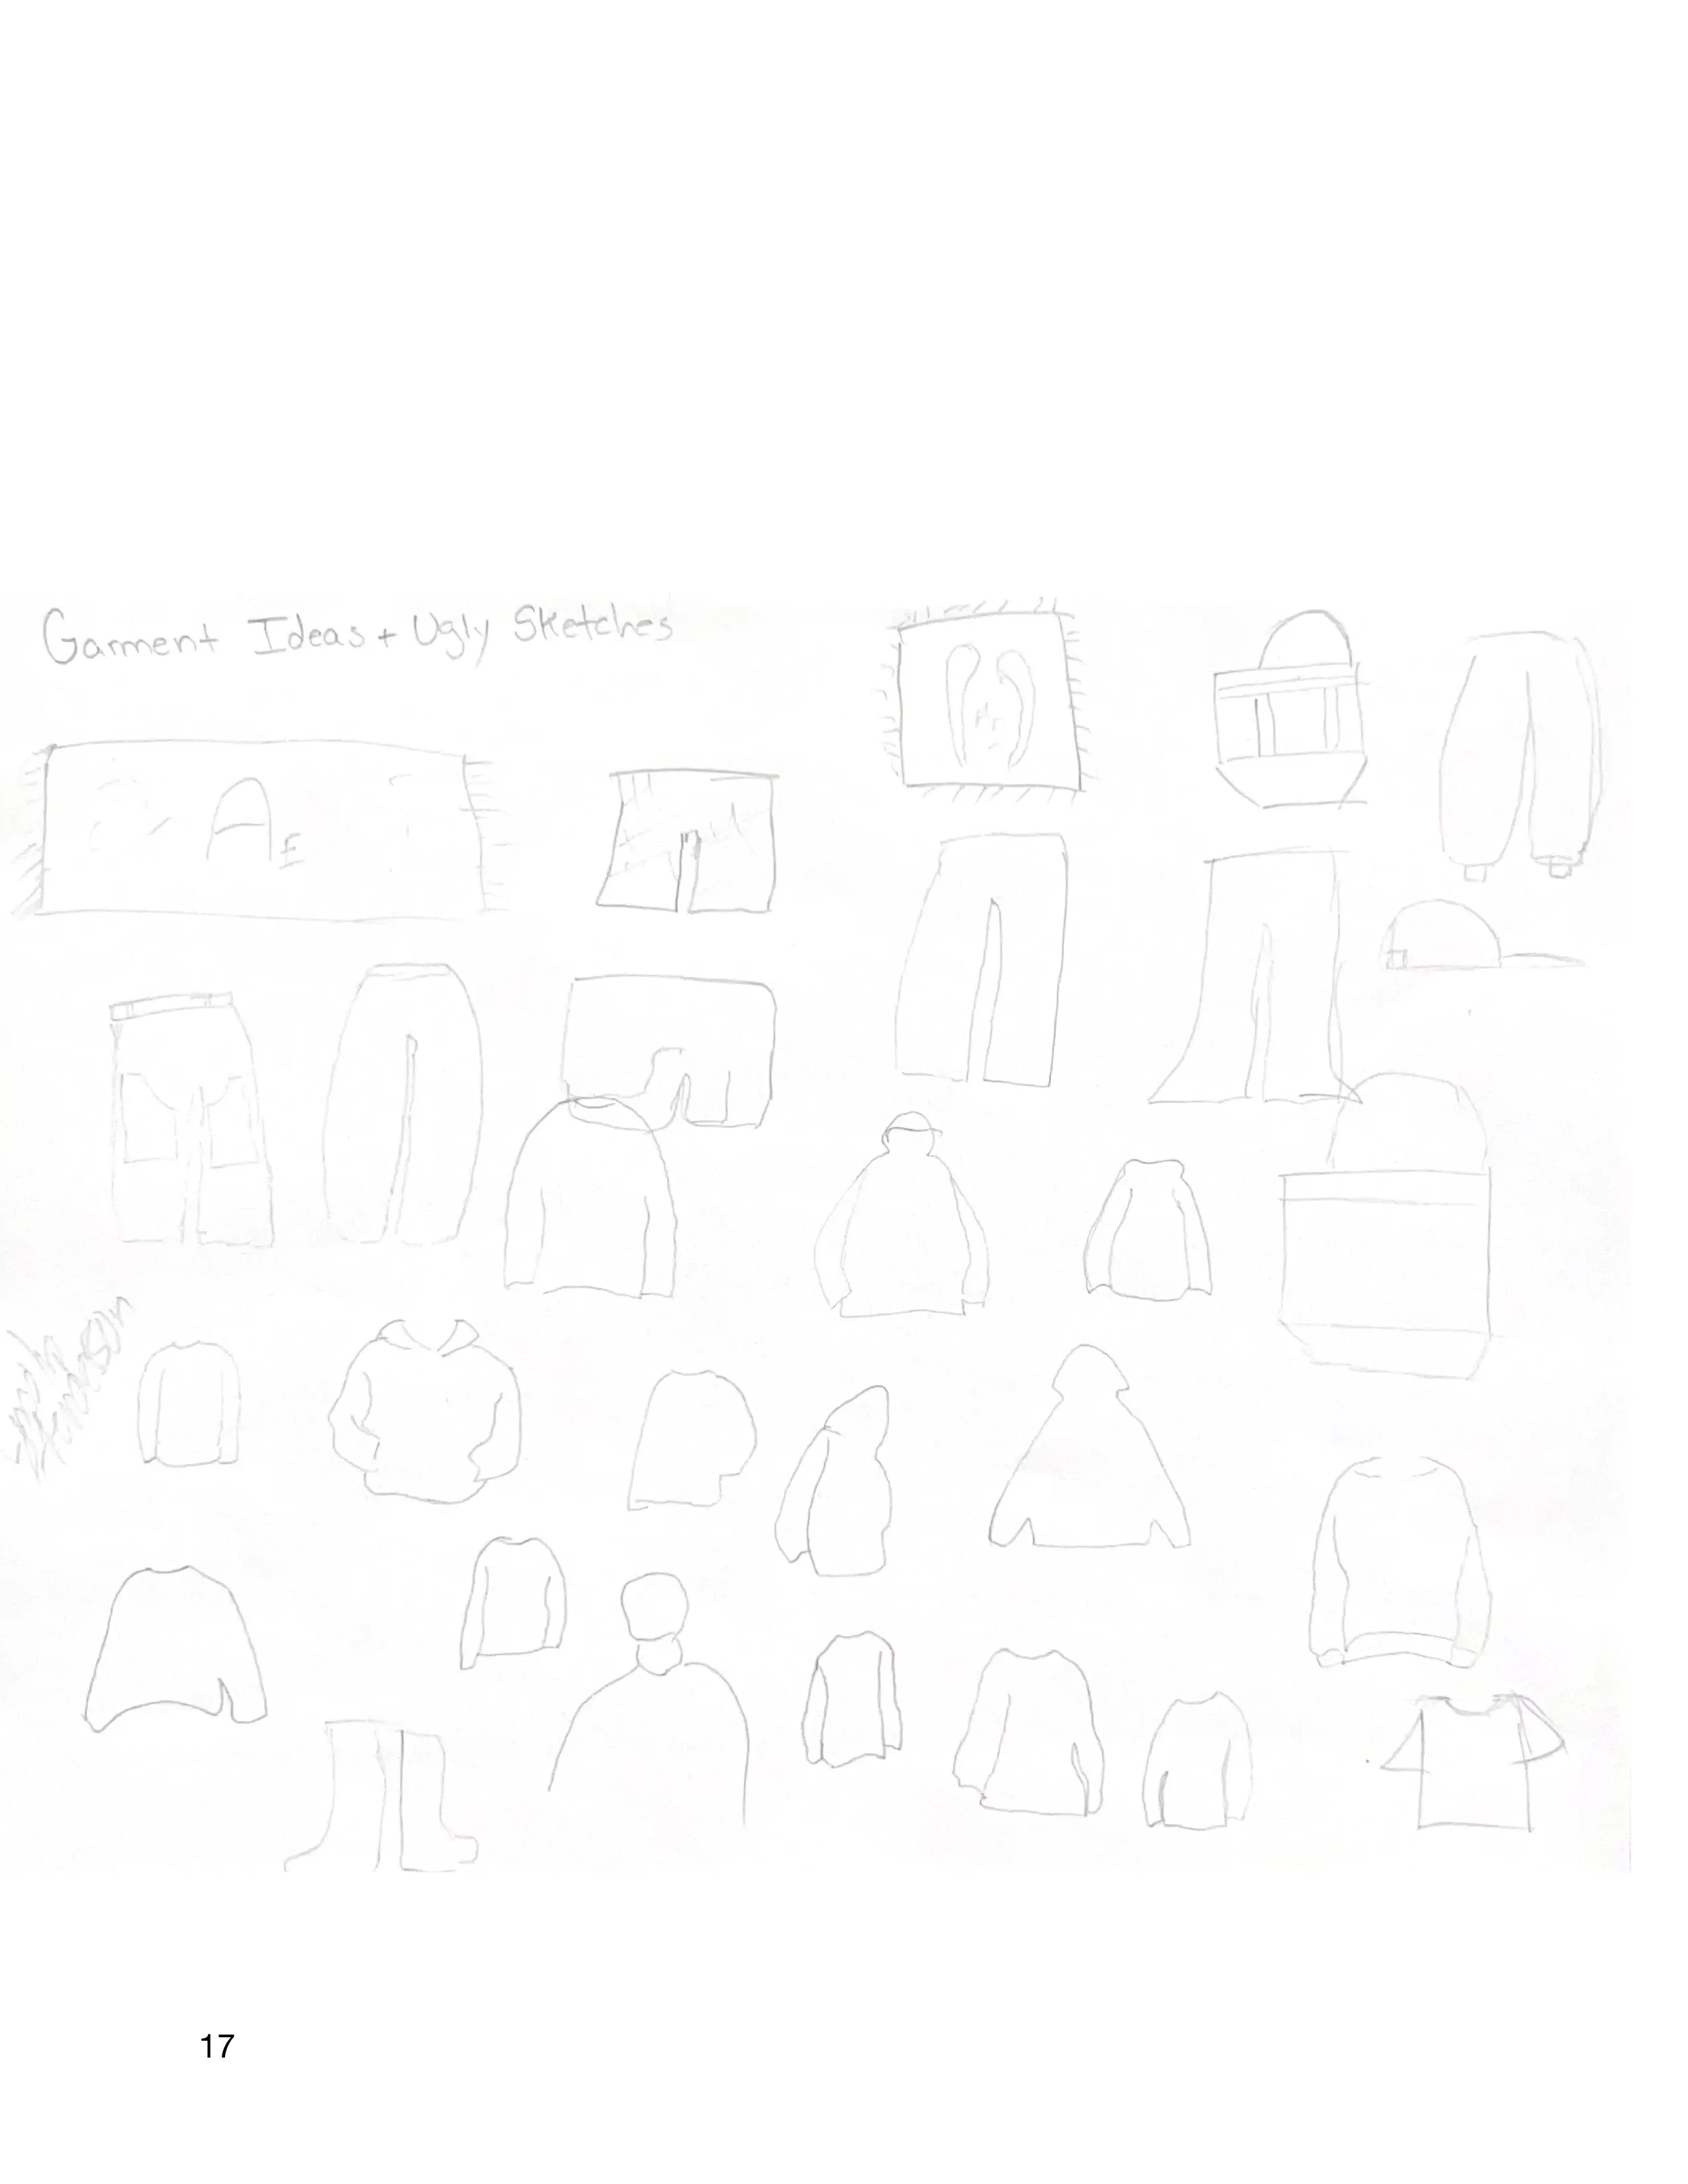 Garment Ideas + Ugly Sketches
A
E
17